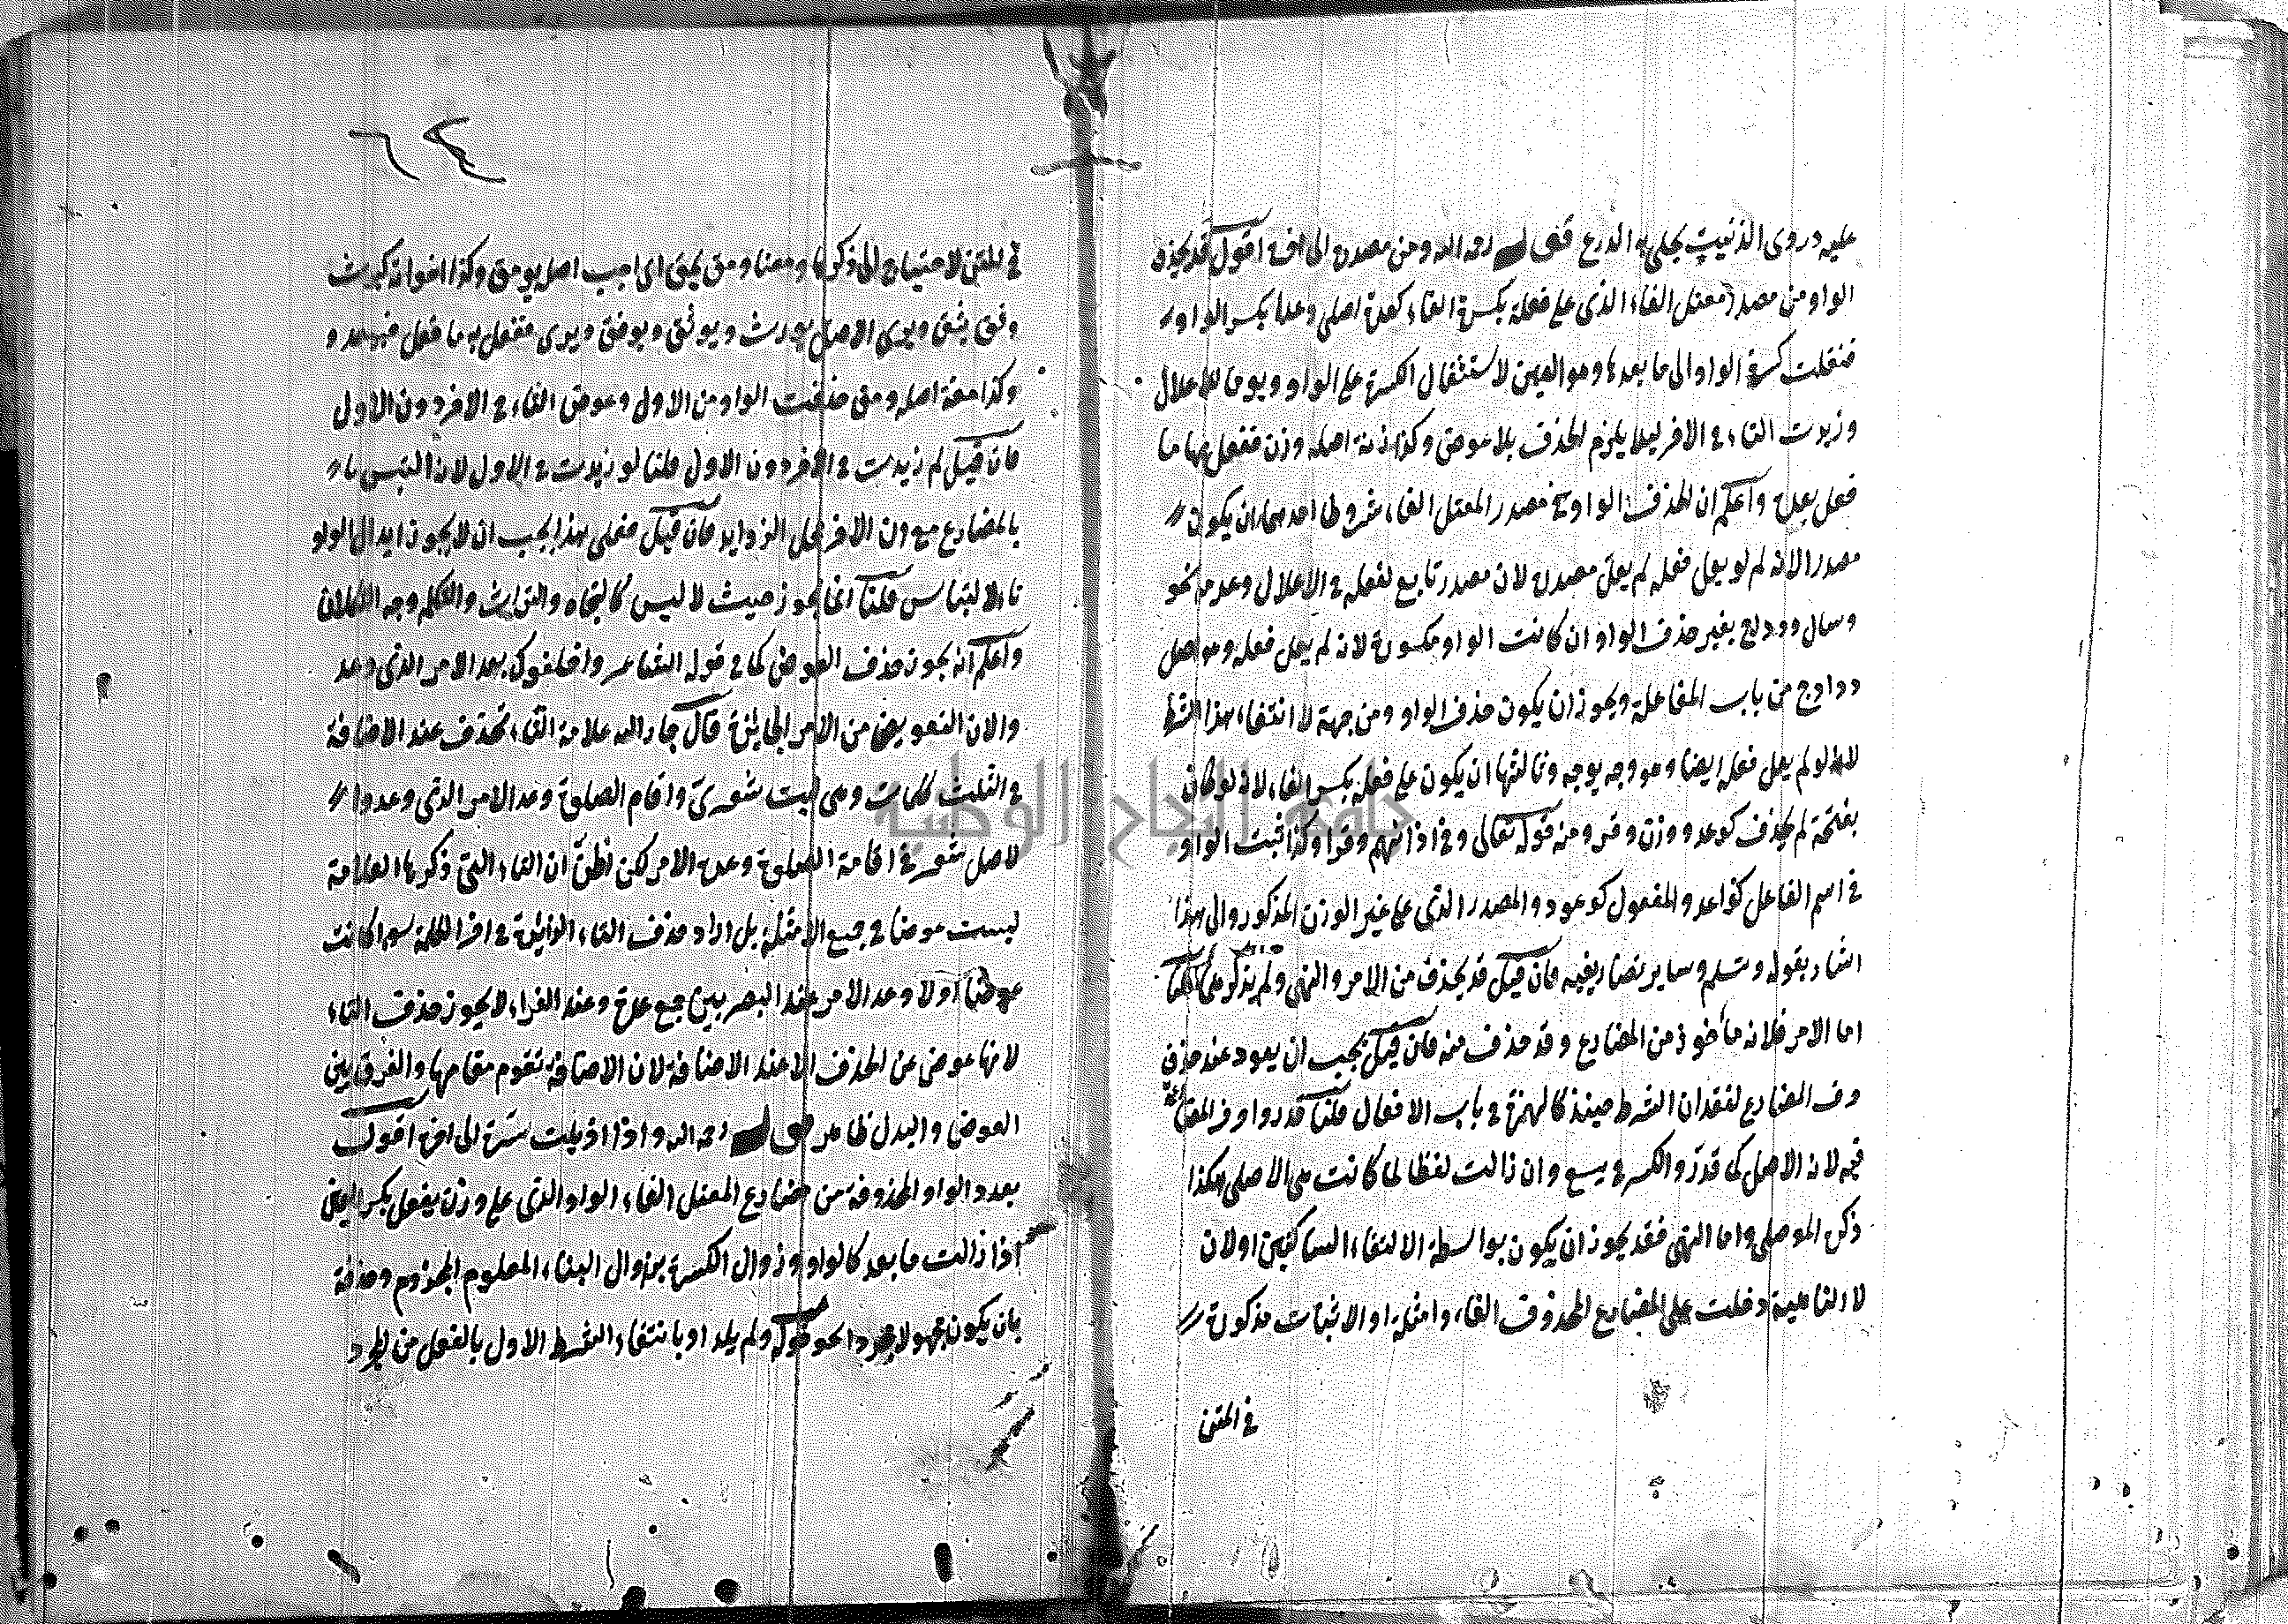 عليه دروى الذنيب يجلى به الدرع قال رحمه الله ومن مصدره الى اخره اقول قد يحذف
الواو من مصدر معتل الفاء الذى على فعلة بكسرة الفاء كعدة اصلى وعدا بكسر الواو
فنقلت كسرة الواو الى ما بعدها وهو العين لاستثقال الكسرة على الواو ويوما للاعلال
وزيدت التاء فى الاخر ليلا يلزم الحذف بلا عوض وكذا زنة اصله وزن ففعل بها ما
فعل بعدة واعلم ان لحذف الواو فى مصدر المعتل الفاء شروطا احدهما ان يكون
مصدرا لانه لم لو يعل فعله لم يعل مصدره لان مصدر تابع لفعله فى الاعلال وعدمه نحو
وصال ووداع بغير حذف الواو ان كانت الواو مكسورة لانه لم يعل فعله وهو اصل
ووادع من باب المفاعلة ويجوز ان يكون حذف الواو ومن جهة لا انتفاء هذا الشرط
لانه لو لم يعل فعله ايضا وهو وجه يوجه وثالثها ان يكون على فعلة بكسر الفاء لانه لو كان
بفتحة لم يحذف كوعد ووزن وقر ومنه قوله تعالى وفى اذانهم وقرا وكذا ثبت الواو
فى اسم الفاعل كواعد والمفعول كوعود والمصدر الذى على غير الوزن المذكور والى هذا
اشار بقوله وسلم وساير تصاريفه فان قيل قد يحذف من الامر والنهى ولم يذكرهما قلنا
اما الامر فلانه مأخوذ من المضارع وقد حذف منه فان قيل يجب ان يعود عند حذف
حرف المضارع لفقدان الشرط حينئذ كالهمزة فى باب الافعال قلنا قدروا
فيه لانه الاصل كما قدرو الكسر فى يسع وان زالت لفظا لما كانت هى الاصلى هكذا
ذكره الموصلى واما النهى فقد يجوز ان يكون بواسطة الالتقاء الساكنين او لان
لا الناهية دخلت على المضارع المحذوف الفاء وامثلة او الاثبات مذكورة
فى المتن
٦٤
فى المتن لا احتياج الى ذكرها ومعنا ومق يمق اى احب اصل يومق وكذا اخواته كيرث
وثق يثق ويرى الاصل يورث ويوثق ويوفق ويورى ففعل به ما فعل فى يعد و
وكذا مقة اصله ومق حذفت الواو من الاول وعوض التاء فى الاخر دون الاول
فان قيل لم زيدت فى الاخر دون الاول قلنا لو زيدت فى الاول لان التبس
بالمضارع مع ان الاخر محل الزوايد فان قيل فعلى هذا يجب ان لا يجوز ابدال الواو
تاء لالتباس قلنا انما يجوز حيث لا لبس كالتجاه والتراث والتكله وجه التكلان
واعلم انه يجوز حذف العوض كما فى قول الشاعر واخلفوك بعد الامر الذى وعد
والان التعويض من الامر الجايزة قال جار الله علامة التاء تحذف عند الاضافة
فى الثلث كلمات وهى ليت شعرى واقام الصلوة وعد الامر الذى وعدوا
لاصل شعرة اقامة الصلوة وعدة الامر لكن نظن ان التاء التى ذكرها العلامة
ليست عوضا فى جميع الامثلة بل اراد حذف التاء الزائدة فى اخر الكلمة سواء كانت
عوضا او لا وعد الامر عند البصريين جمع عدة وعند الفراء لا يجوز حذف التاء
لانها عوض عن الحذف الا عند الاضافة لان الاضافة تقوم مقامها والفرق بين
العوض والبدل ظاهر قال رحمه الله واذا ازيلت كسرة الى اخره اقول
بعد والواو المحذوفة من مضارع المعتل الفاء الواو الذى على وزن يفعل بكسر العين
اذا زالت ما بعد كالواو وزوال الكسرة بزوال البناء المعلوم المجزوم وحذفة
بان يكون مجهولا مجردا نحو قوله ولم يلد او بانتفاء الشرط الاول بالفعل من المجرد